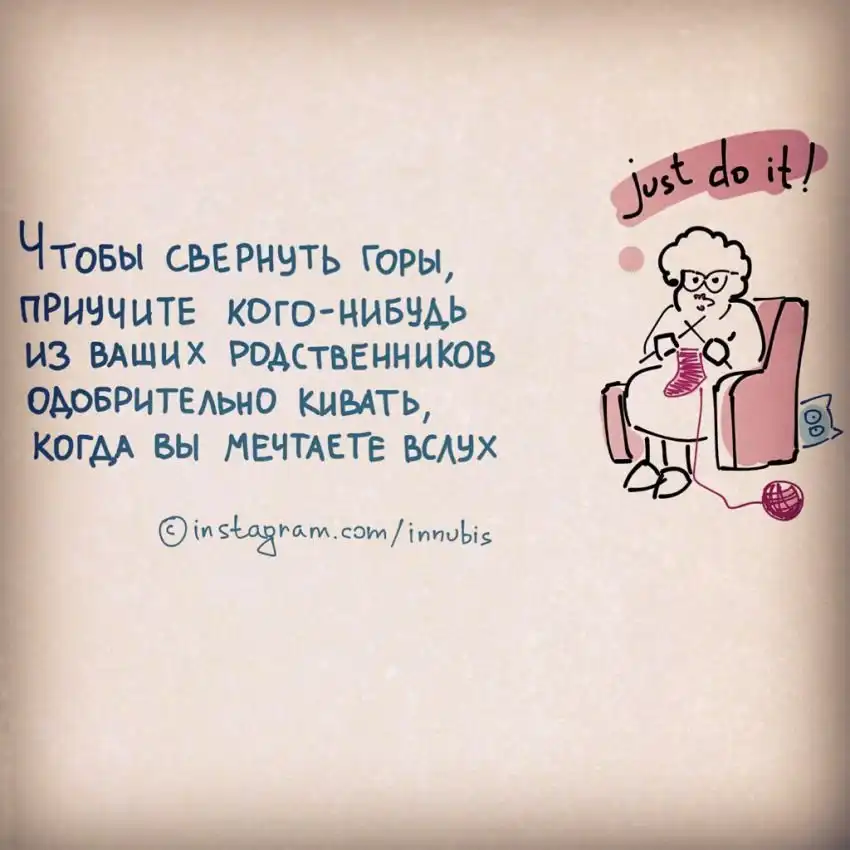 Чтобы свернуть горы,
приучите кого-нибудь
из ваших родственников
одобрительно кивать,
когда вы мечтаете вслух
©instagram.com/innubis
just do it!